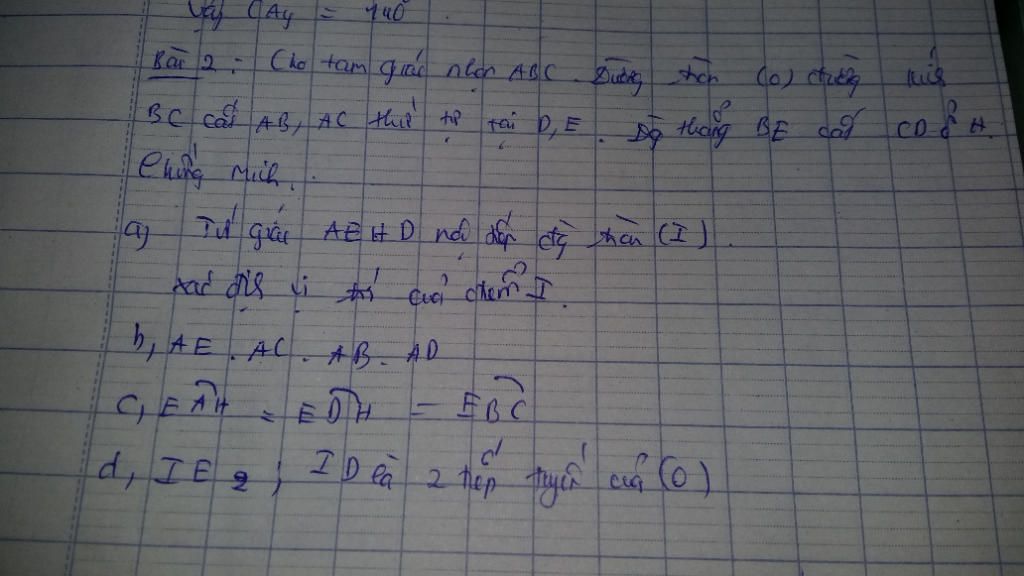 Vậy CAy = 140
Bài 2: Cho tam giác nhọn ABC. Đường tròn (O) đường kính
BC cắt AB, AC thứ tự tại D, E. Đg thẳng BE cắt CD ở H.
Chứng minh.
a) Tứ giác AEHD nội tiếp đg tròn (I).
xác định vị trí của điểm I.
b, AE. AC. AB. AD
c, EAH = EDH = EBC
d, IE ; ID là 2 tiếp tuyến của (O)